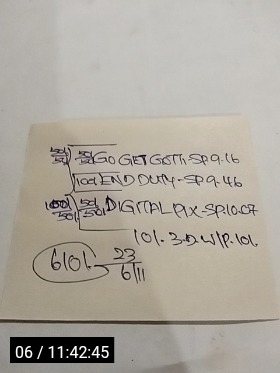 50/50) 50/50 GO GET GOTH-SP.9.16
100/ END DUTY-SP.9.46
100/50/) 50/50/ DIGITAL PIX-SP.10.07
10/.3.D.W/P.10/.
610/- 23
6/11
06 / 11:42:45